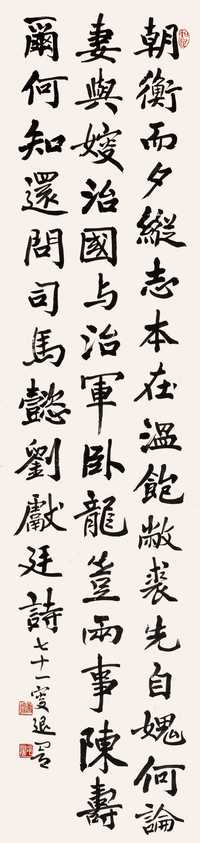 朝衡而夕縱志本在溫飽敝裘先自媿何論
妻與嫂治國与治軍臥龍豈兩事陳壽
爾何知還問司馬懿劉獻廷詩
七十一叟退